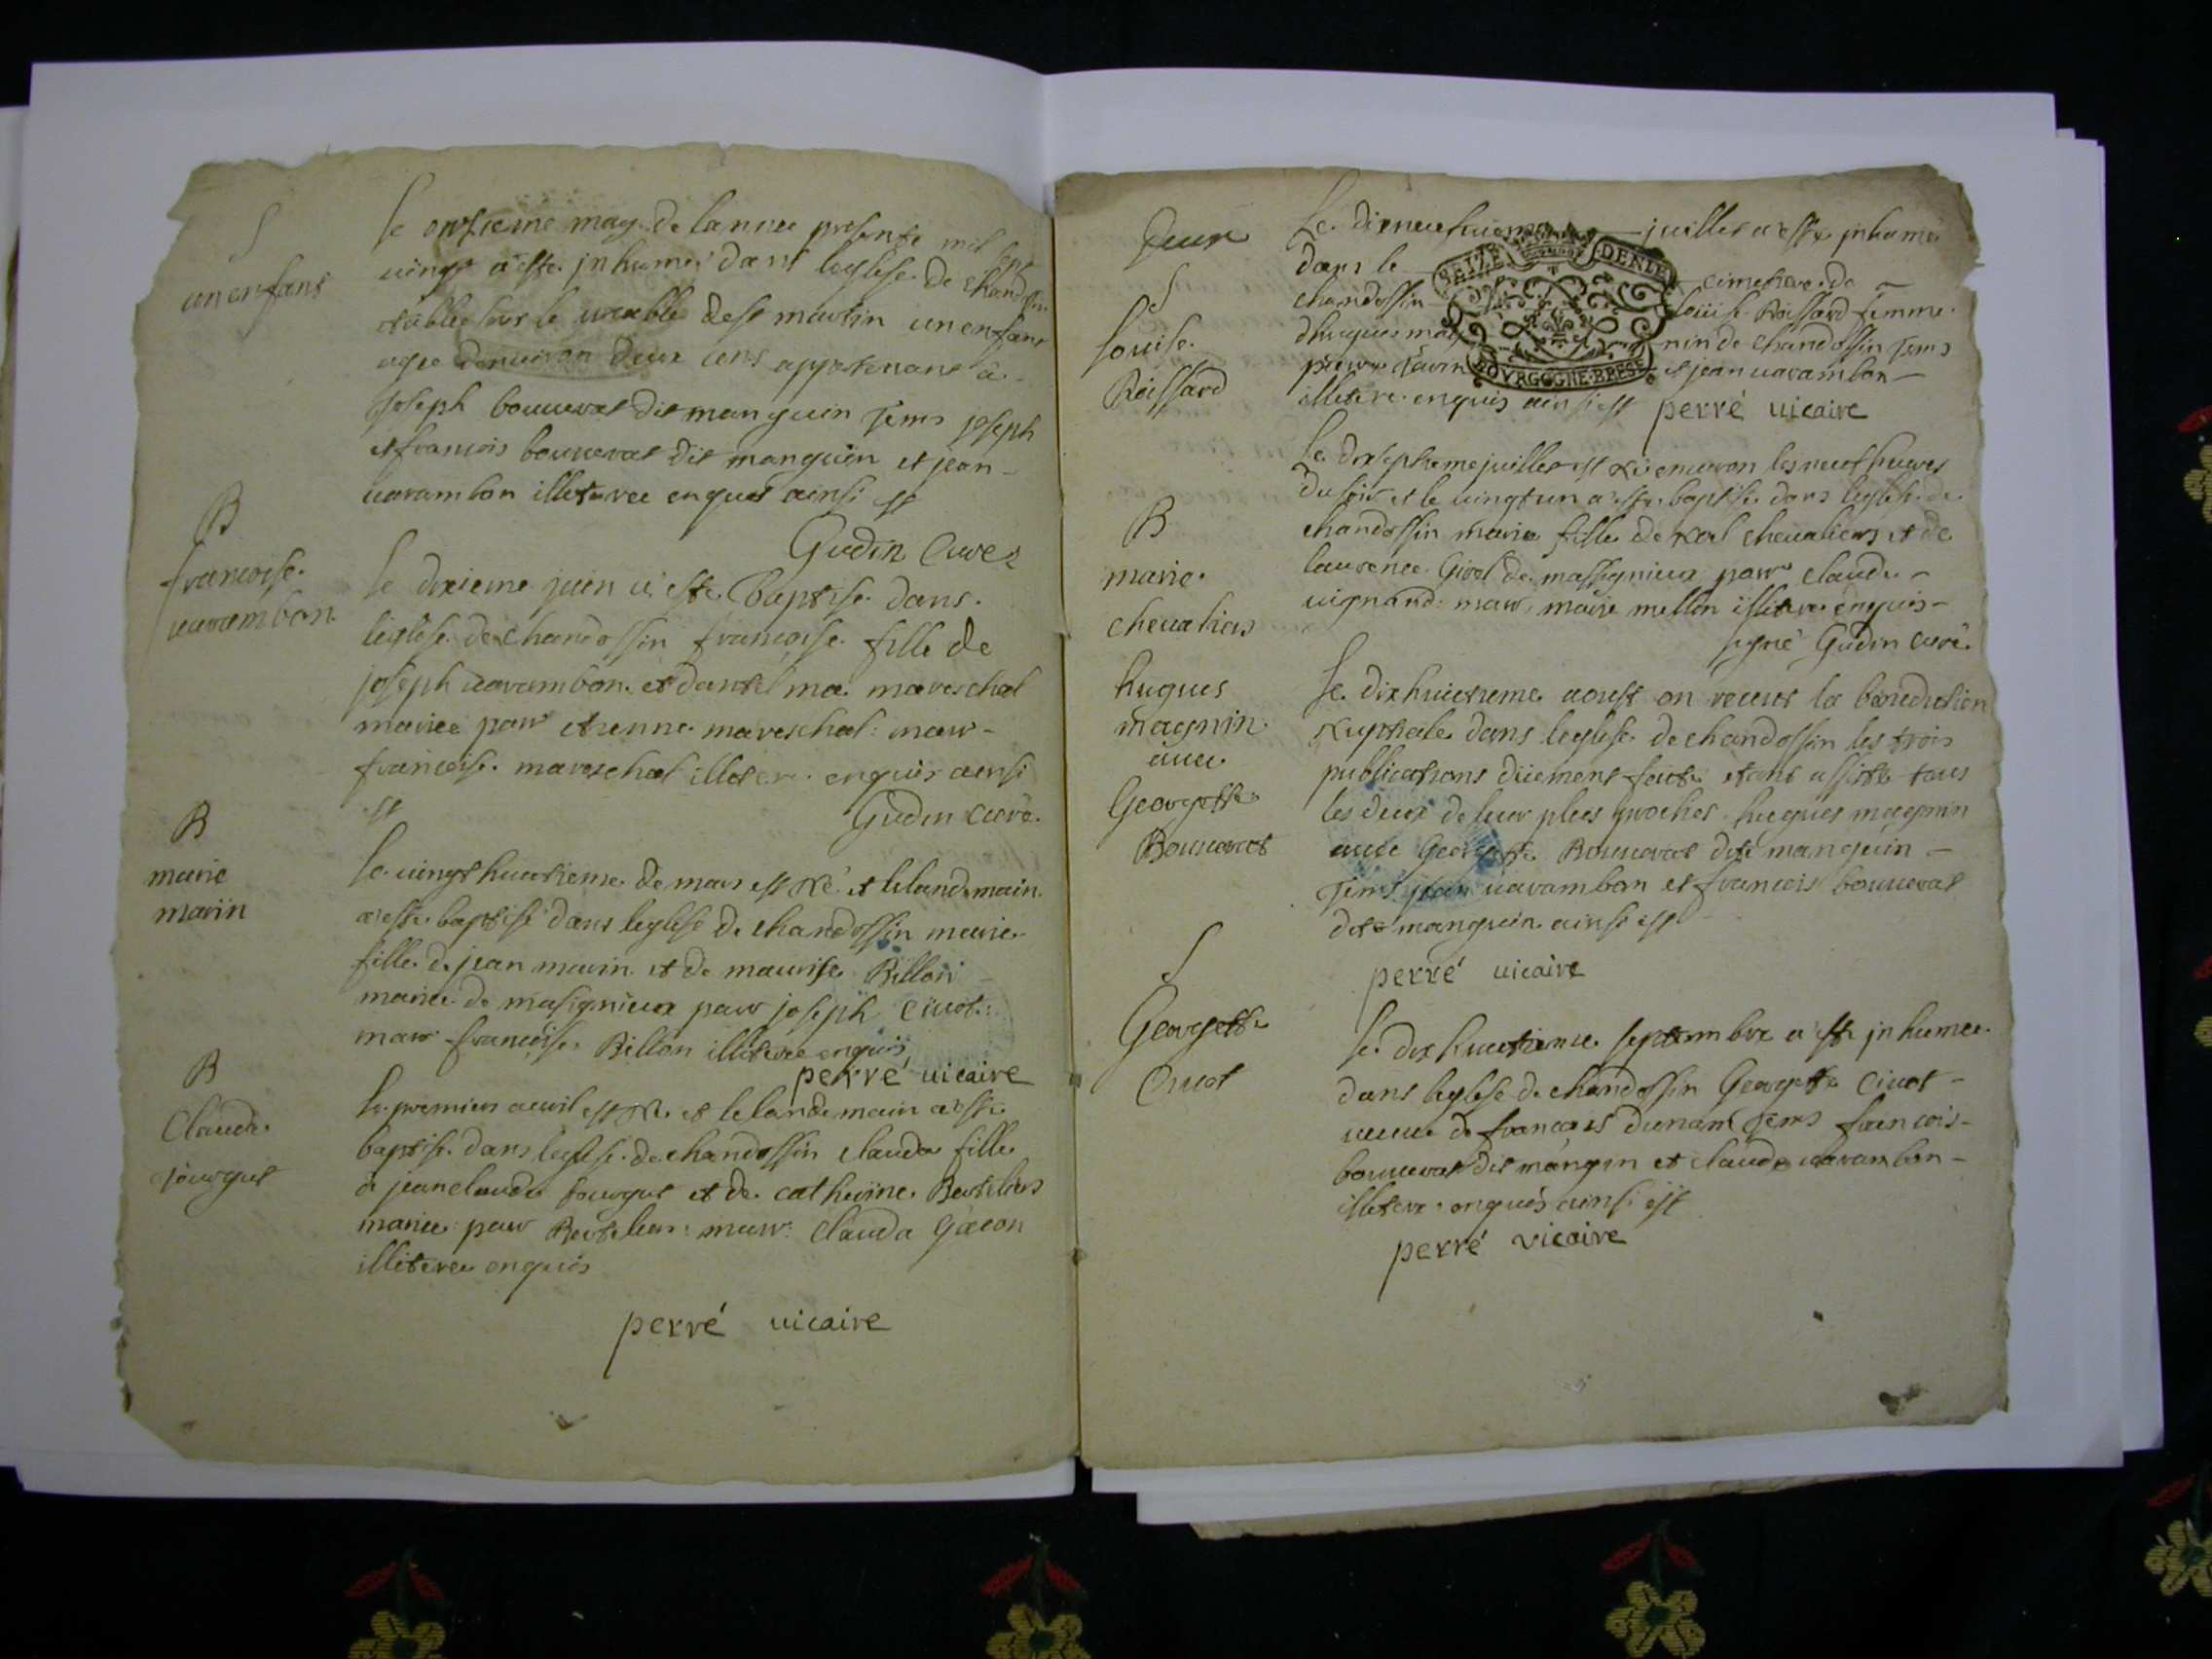 S
un enfans
le onzieme may de lannee presente mil sept
vingt a esté jnhumé dans leglise de chandossin
un enfans
agee denuiron deux ans appartenant a
joseph bouuerat dit manguin Tems joseph
et francois bouuerat dit manguin et jean
uarambon illeteree enquis ainsi est
Gudin Curé
B
francoise
uarambon
le dixieme juin a esté baptise dans
leglise de chandossin francoise fille de
joseph uarambon et mareschal
mariee parr etienne mareschal marr
francoise mareschal illetere enquis ainsi
est
Gudin curé
B
marie
marin
le uingt huictieme de mars est né et lelandemain
a esté baptisé dans leglise de chandossin marie
fille de jean marin et de maurise Billon
mariee de masignieux parr joseph Ciuot
marr francoise Billon illiteree enquis
perré uicaire
B
Clauda
jourgut
le premier auril est né et lelandemain a esté
baptise dans leglise de chandossin clauda fille
a jean claude jourgut et de catherine Berteliers
mariee parr marr Clauda Gacon
illiteree enquis
perré uicaire
Deux
S
louise
Roissard
Le dixneufuieme juillet a esté jnhumé
dans le cimetiere de
chandossin louise Roissard femme
dhugues mag nin de chandossin Tems
pierre et jean uarambon
illetere enquis ainsi est perré uicaire
SEIZE DENIE
BOVRGOGNE BRESSE
B
marie
cheualiers
Le dixseptieme juillet est né enuiron les neuf heures
du soir et le uingt un a esté baptise dans leglise de
chandossin marie fille de noel cheualiers et de
laurence Girel de massignieux parr claude
uignand marr marie mellon illitere enquis
signé Gudin curé
hugues
magnin
auec
Georgette
Bouuerat
Le dixhuictieme aoust on receut la benediction
nuptiale dans leglise de chandossin les trois
publications düement faite etant assiste tous
les deux de leur plus proches hugues magnin
auec Georgette Bouuerat dite manguin
Tems jean uarambon et francois bouuerat
dite manguin ainsi est
perré uicaire
S
Georgette
Ciuot
Le dix huictieme septembre a esté jnhumee
dans leglise de chandossin Georgette Ciuot
ueuue de francois dunand Tems francois
bouuerat dit mangin et claude uarambon
illetere enqués ainsi est
perré vicaire